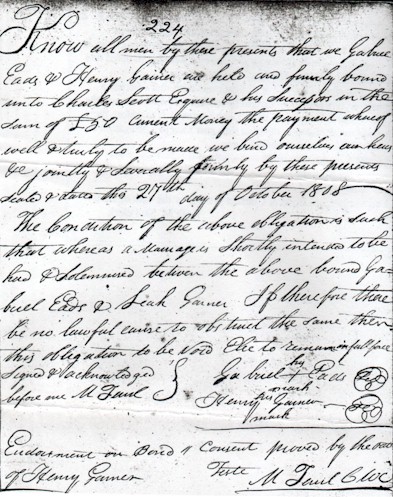 224
Know all men by these presents that we Gabriel
Eads & Henry Garner are held and firmly bound
unto Charles Scott Esquire & his Successors in the
sum of £50 Current Money the payment whereof
well & truly to be made we bind ourselves our heirs
&c jointly & severally firmly by these presents
sealed & dated this 27th day of October 1808
The Condition of the above obligation is such
that whereas a Marriage is Shortly intended to be
had & Solemnized between the above bound Ga-
briel Eads & Leah Garner If therefore there
be no lawful cause to obstruct the same then
this obligation to be void Else to remain in full force
Signed & acknowledged
before me M Taul
Gabriel his mark Eads
Henry his mark Garner
Endorsment on Bond & Consent proved by the
of Henry Garner Teste M Taul CWC